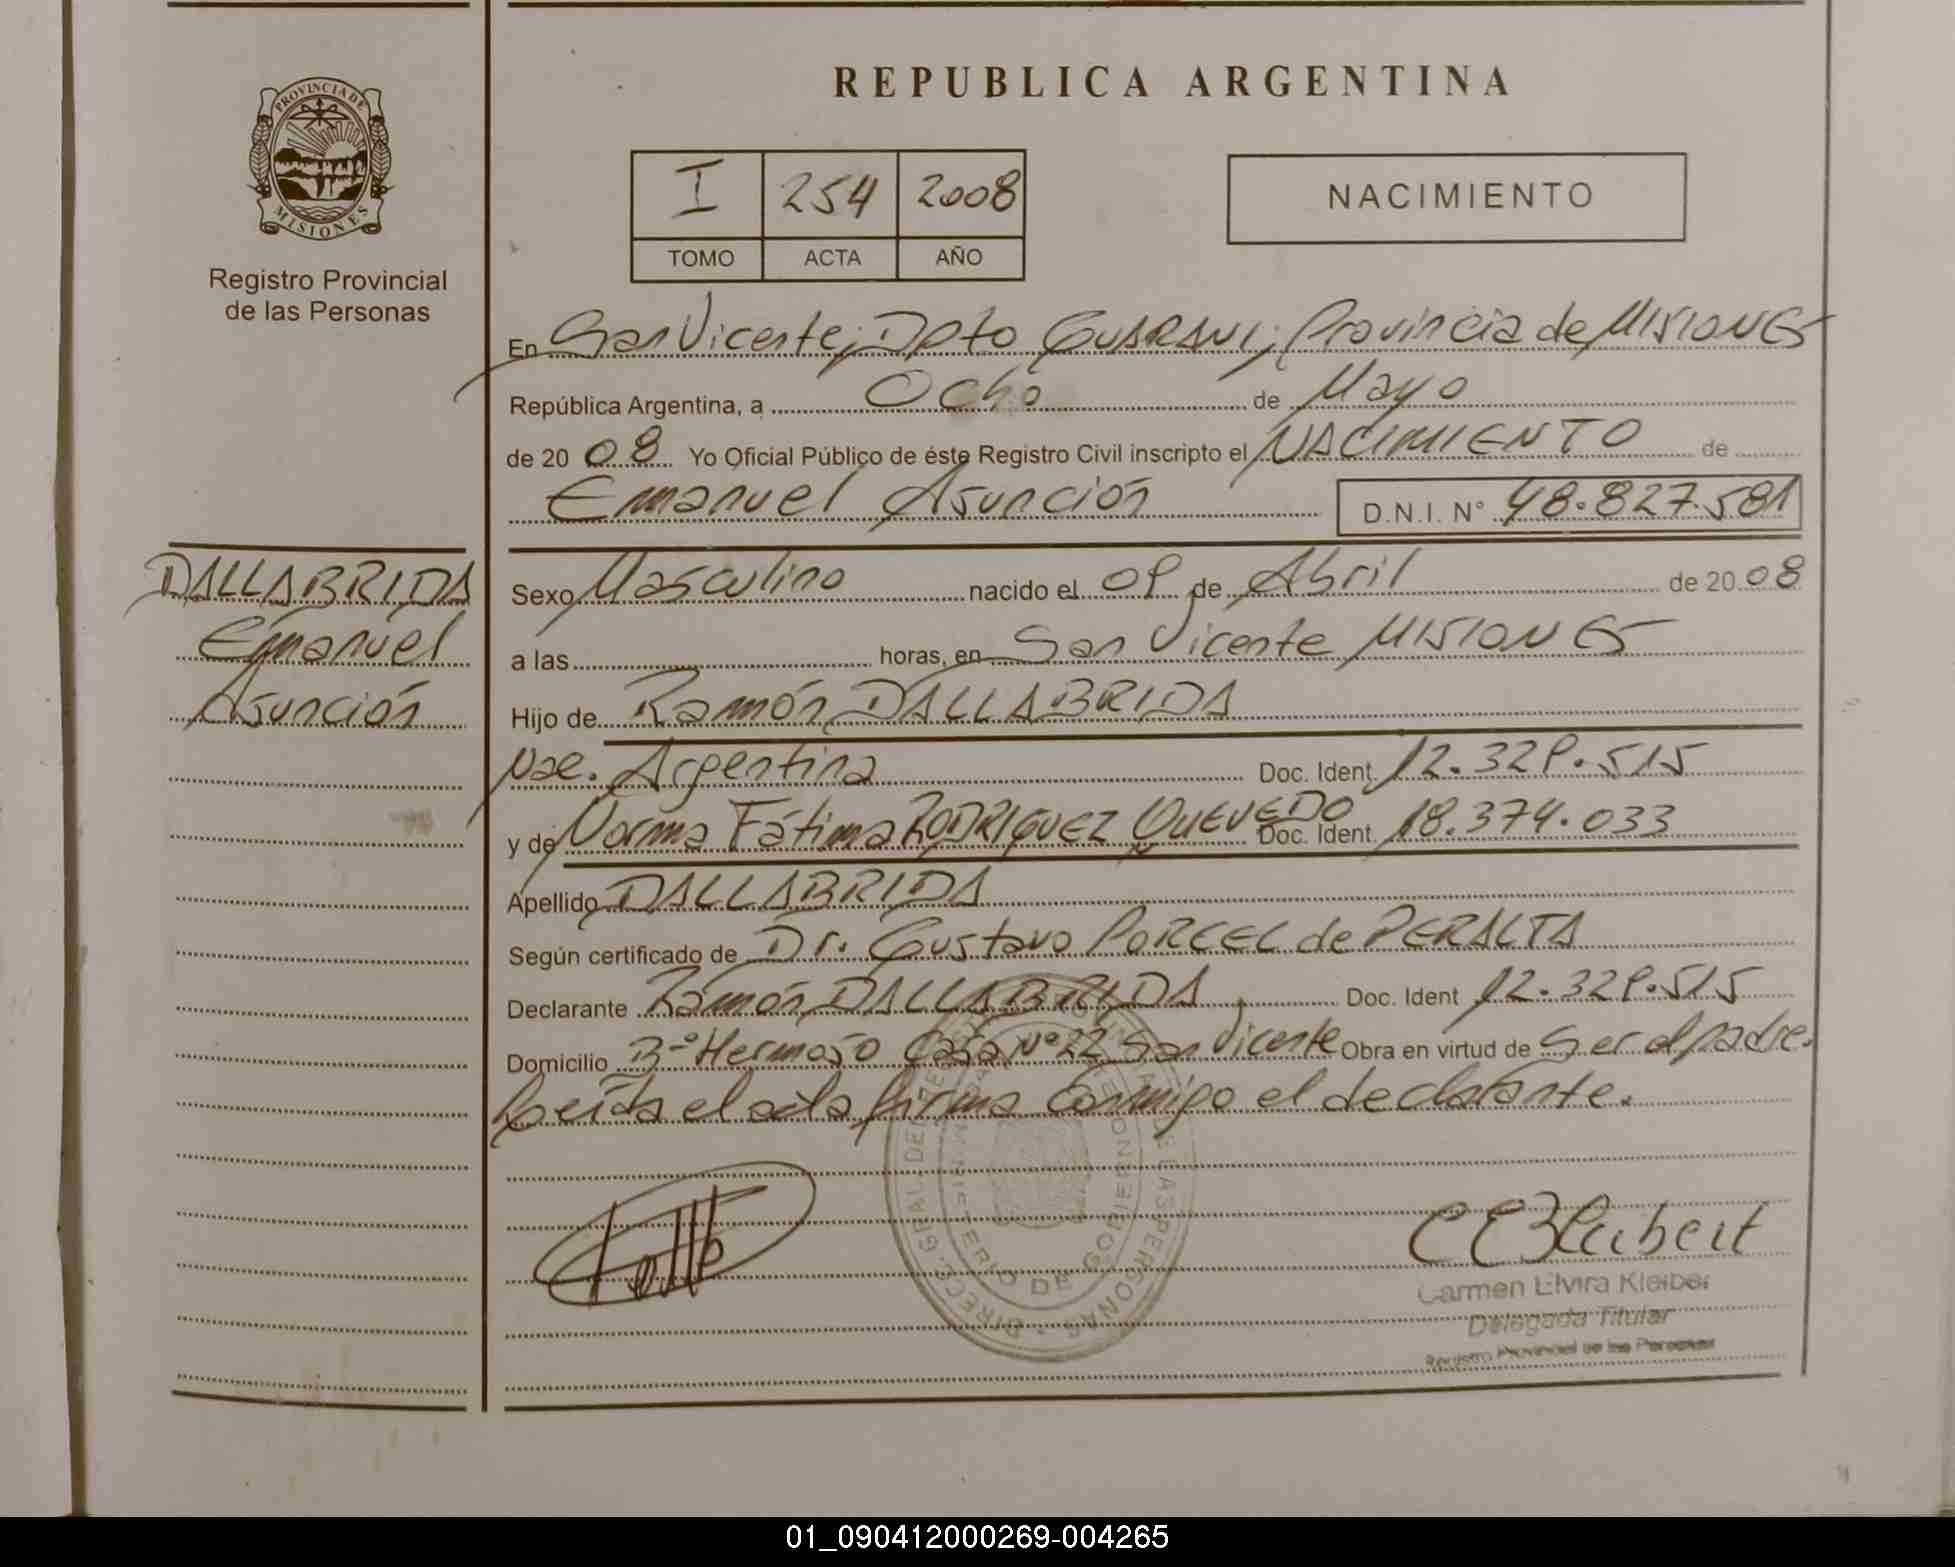 REPUBLICA ARGENTINA
PROVINCIA DE
MISIONES
Registro Provincial
de las Personas
I 254 2008
TOMO ACTA AÑO
NACIMIENTO
En San Vicente; Dpto GUARANI; Provincia de MISIONES
República Argentina, a Ocho de Mayo
de 20 08 Yo Oficial Público de éste Registro Civil inscripto el NACIMIENTO de
Emanuel Asunción D.N.I. N° 48.827.581
DALLABRIDA
Emanuel
Asunción
Sexo Masculino nacido el 09 de Abril de 20 08
a las horas, en San Vicente MISIONES
Hijo de Ramón DALLABRIDA
Nac. Argentina Doc. Ident. 12.329.515
y de Norma Fátima RODRIGUEZ QUEVEDO Doc. Ident. 18.374.033
Apellido DALLABRIDA
Según certificado de Dr. Gustavo PORCEL de PERALTA
Declarante Ramón DALLABRIDA Doc. Ident 12.329.515
Domicilio B° Hermoso Casa N° 22 San Vicente Obra en virtud de Ser el padre.
Leída el acta firma conmigo el declarante.
MINISTERIO DE GOBIERNO
Carmen Elvira Kleiber
Delegada Titular
Registro Provincial de las Personas
01_090412000269-004265